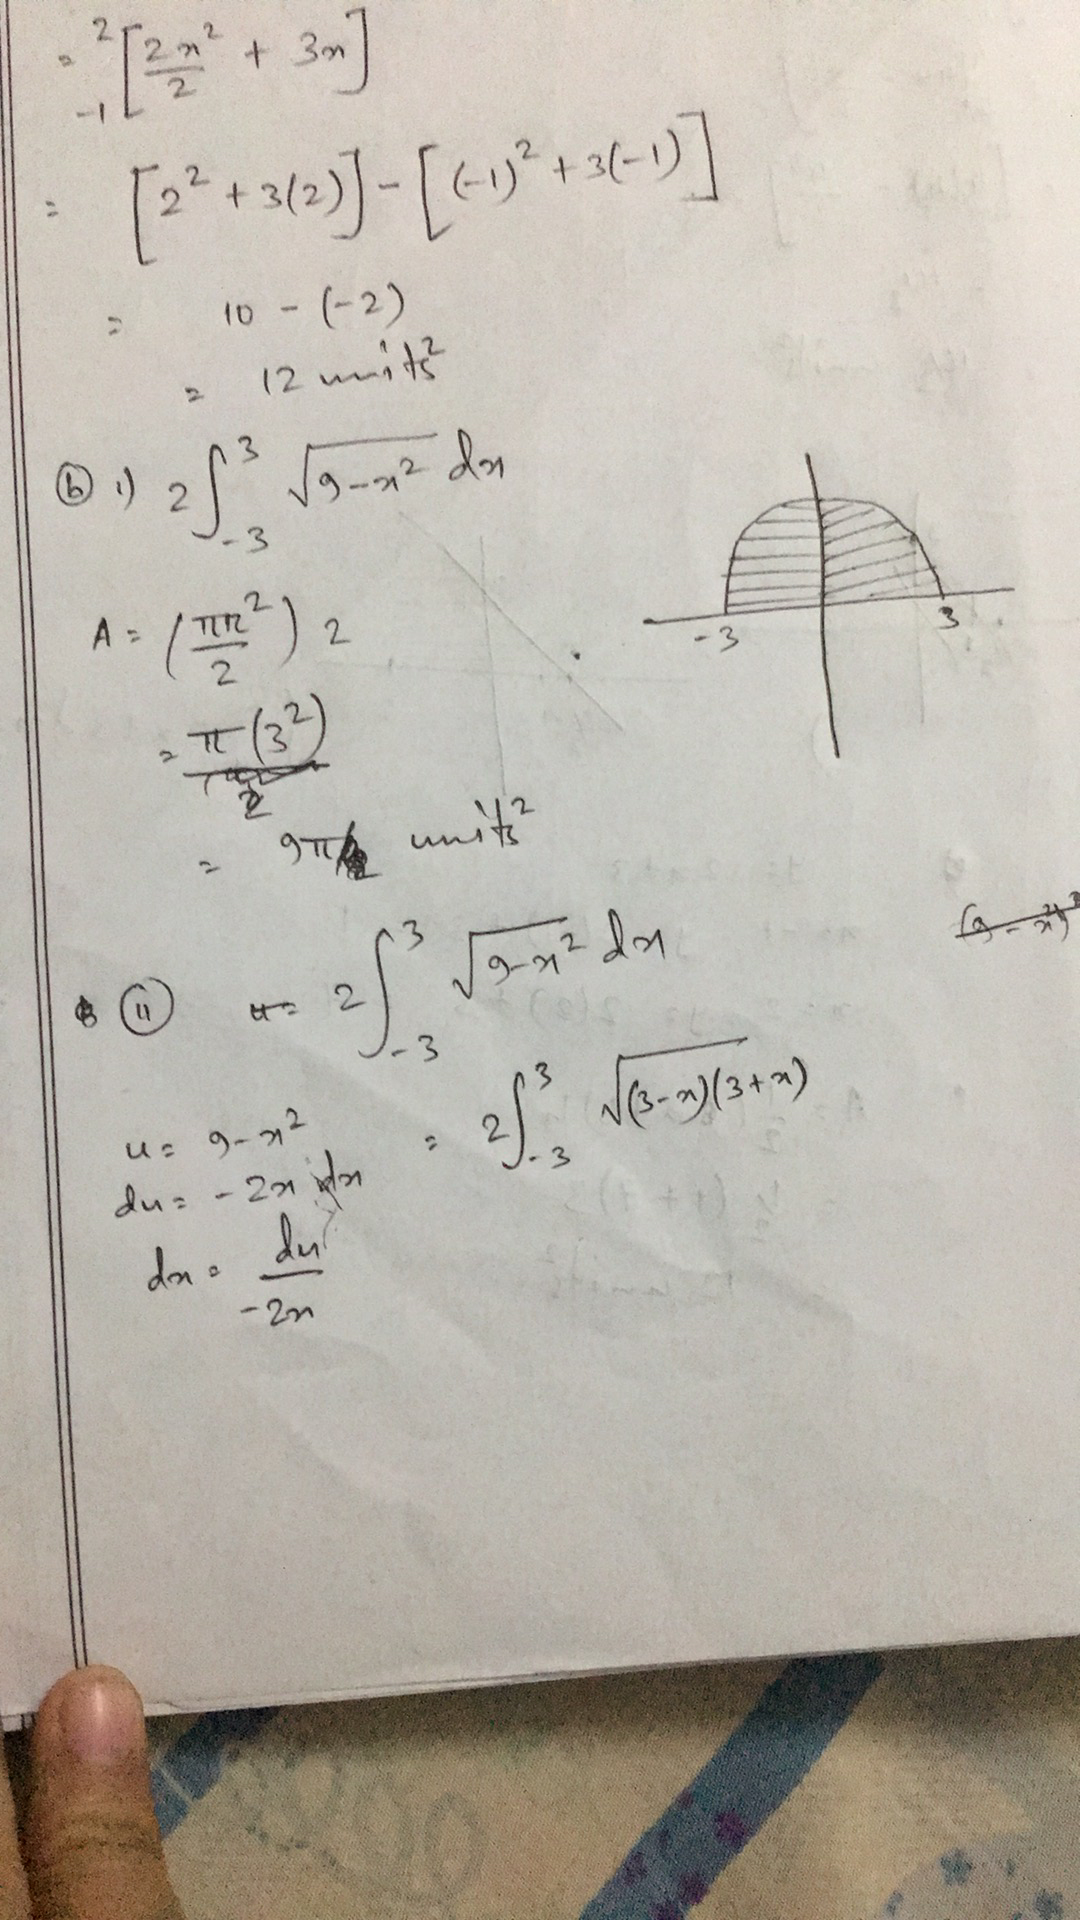 = ₋₁²[2x²/2 + 3x]
= [2² + 3(2)] - [(-1)² + 3(-1)]
= 10 - (-2)
= 12 units²
ⓑ i) 2∫₋₃³ √(9-x²) dx
-3 3
A = (πr²/2) 2
= π(3²)
= 9π units²
(ii) 2∫₋₃³ √(9-x²) dx
= 2∫₋₃³ √((3-x)(3+x))
u = 9-x²
du = -2x dx
dx = du/-2x